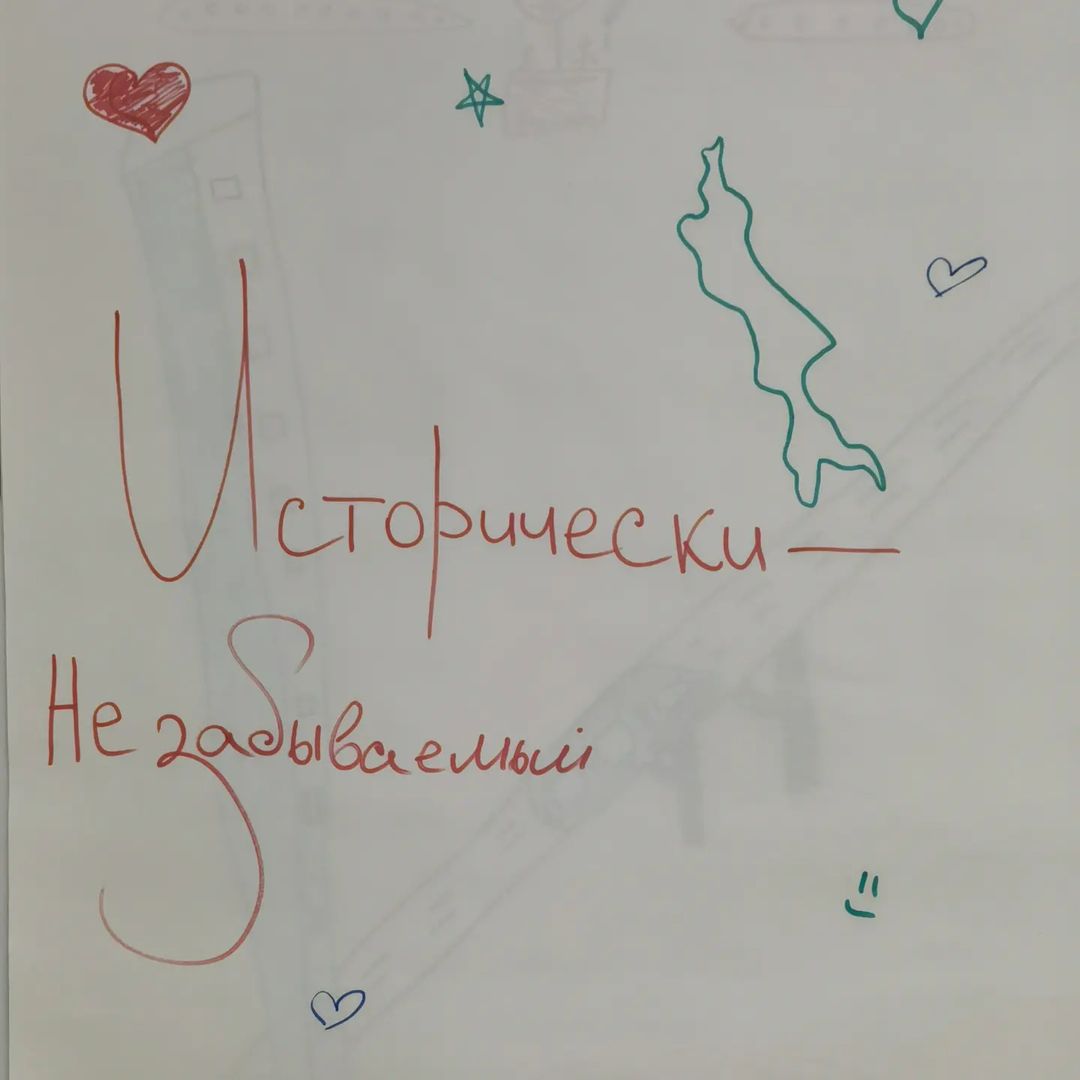 Исторически —
Незабываемый